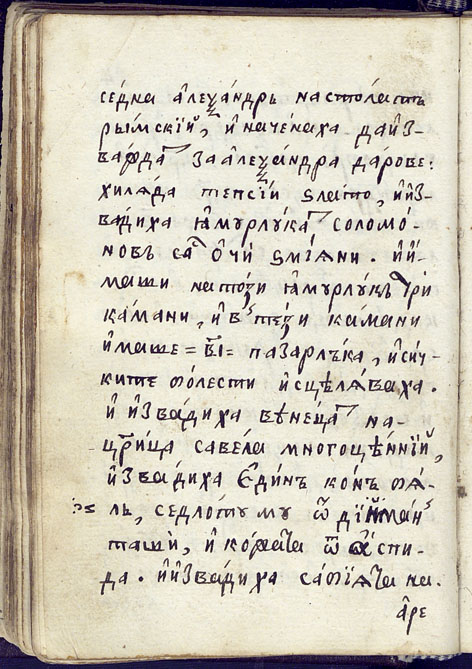 се́дна а҆леѯа́ндръ настола́тъ
ры́мскїй, и҆ наче́наха да и҆з-
ва́ѳда за а҆леѯа́ндра да́рове:
хилѧ́да тепсі́и ѕла́то, и҆ и҆з-
ва́диха ꙗ҆мурлу́ка соломо́-
новъ са о҆́чи ѕмїѧни. и҆ и҆-
маши на то́зи ꙗ҆мурлу́къ трї
ка́мани, и҆ в тези камани
и҆маше = в҃і = пазарлъка, и҆ сич-
ките болести и҆сцѣлѧ́ваха.
и҆ и҆зва́диха вѣне́ца на-
цр҃и́ца саве́ла многоцѣ́нній,
и҆зва́диха є҆ди́нъ ко́нъ бѧ-
лъ, седлоту му ѿ дїима́н
таши, и҆ кора́та ѿ а҆́спи-
да. и҆ и҆зва́диха сабїѧ́та на.
а҆́ре